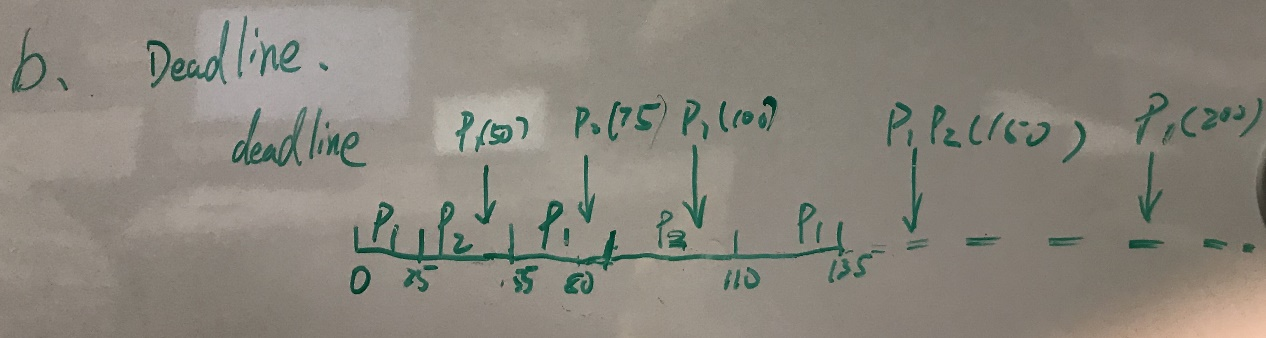 b、 Deadline.
deadline P₁(50) P₂(75) P₁(100) P₁P₂(150) P₁(200)
P₁ P₂ P₁ P₂ P₁
0 25 55 80 110 135